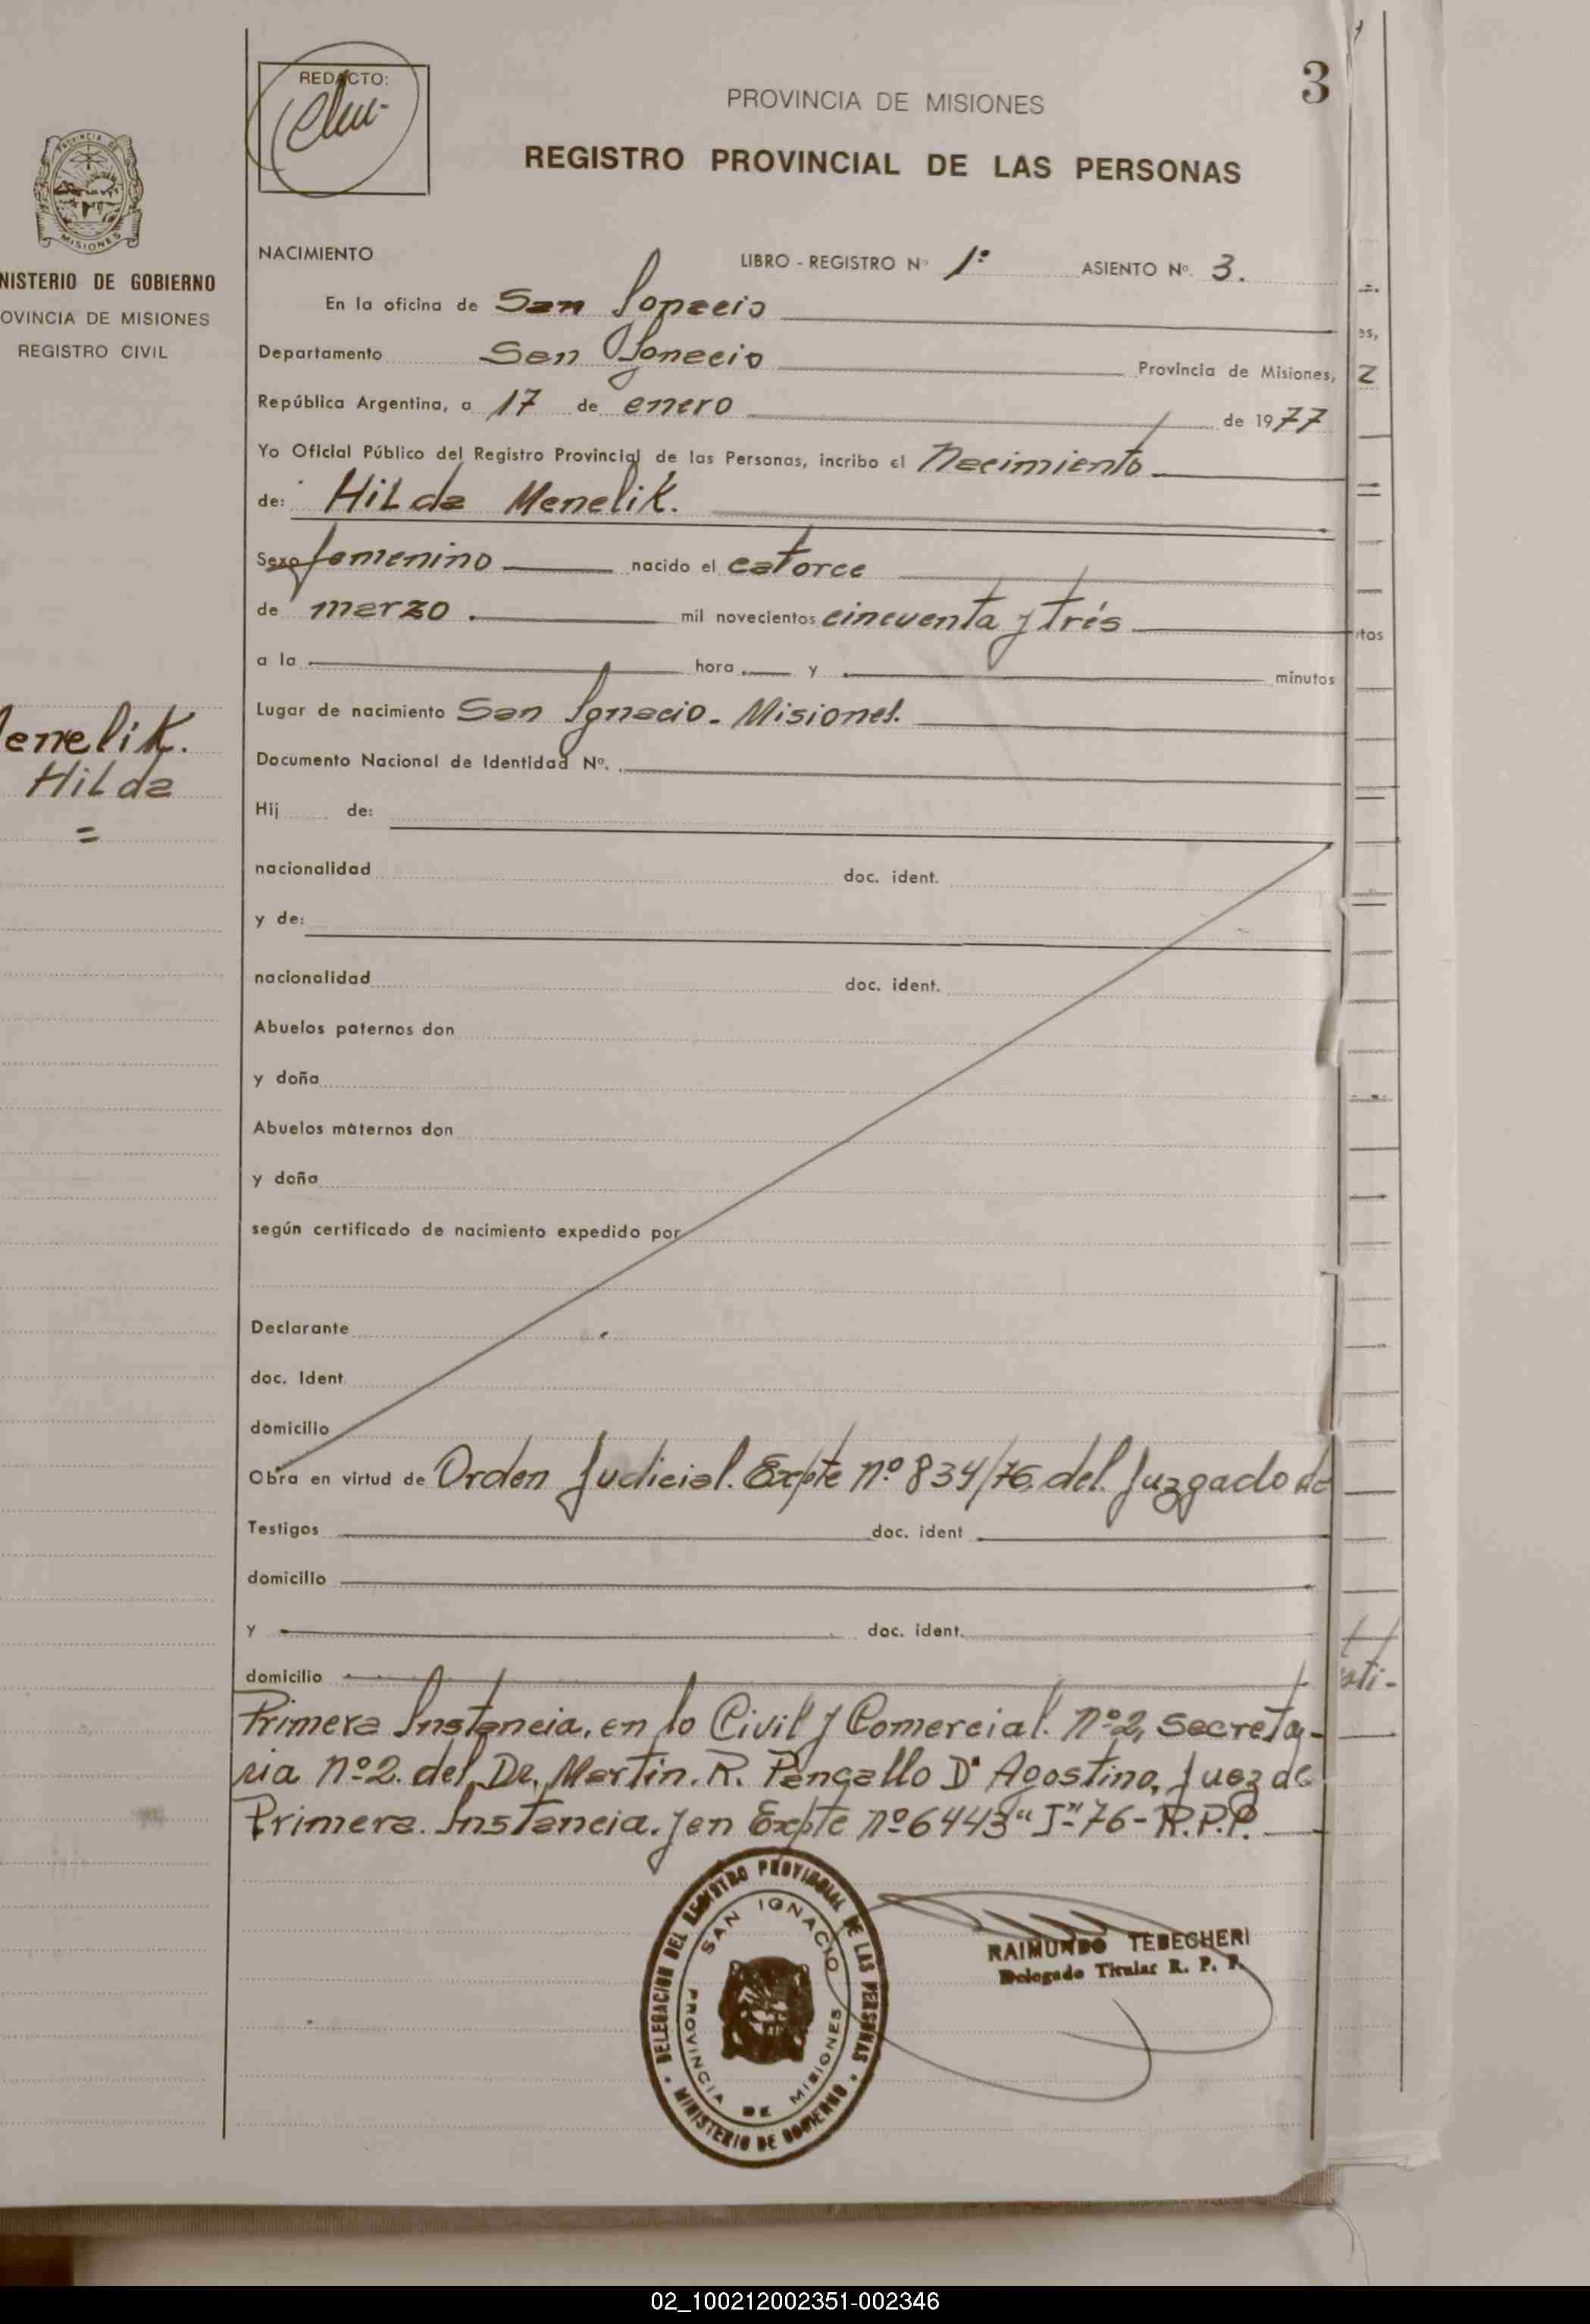 REDACTO:
PROVINCIA DE MISIONES
3
REGISTRO PROVINCIAL DE LAS PERSONAS
PROVINCIA DE
MISIONES
NISTERIO DE GOBIERNO
OVINCIA DE MISIONES
REGISTRO CIVIL
enelik.
Hilda
=
NACIMIENTO LIBRO - REGISTRO Nº 1º ASIENTO Nº. 3.
En la oficina de San Ignacio
Departamento San Ignacio Provincia de Misiones,
República Argentina, a 17 de enero de 1977
Yo Oficial Público del Registro Provincial de las Personas, incribo el Nacimiento
de: Hilda Menelik.
Sexo femenino nacido el catorce
de marzo. mil novecientos cincuenta y trés
a la hora y minutos
Lugar de nacimiento San Ignacio. Misiones.
Documento Nacional de Identidad Nº.
Hij de:
nacionalidad doc. ident.
y de:
nacionalidad doc. ident.
Abuelos paternos don
y doña
Abuelos maternos don
y doña
según certificado de nacimiento expedido por
Declarante
doc. Ident
domicilio
Obra en virtud de Orden Judicial. Expte nº 834/76 del Juzgado de
Testigos doc. ident
domicilio
y doc. ident.
domicilio
Primera Instancia, en lo Civil y Comercial. nº 2, secreta-
ria nº 2. del Dr. Martin. R. Pancallo D' Agostino, Juez de
Primera. Instancia. y en Expte nº 6443 "J"-76- R.P.P.
DELEGACION DEL REGISTRO PROVINCIAL DE LAS PERSONAS
SAN IGNACIO
PROVINCIA DE MISIONES
MINISTERIO DE GOBIERNO
RAIMUNDO TEBECHERI
Delegado Titular R. P. P.
es,
Z
tos
sti-
02_100212002351-002346